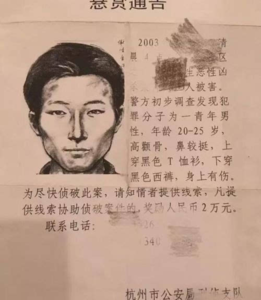 悬赏通告
2003
区
恶性凶
人被害。
警方初步调查发现犯
罪分子为一青年男
性，年龄 20-25 岁，
高颧骨，鼻较挺，上
穿黑色 T 恤衫，下穿
黑色西裤，身上有伤。
为尽快侦破此案，请知情者提供线索，凡提
供线索协助侦破案件的，奖励人民币 2 万元。
联系电话：
杭州市公安局